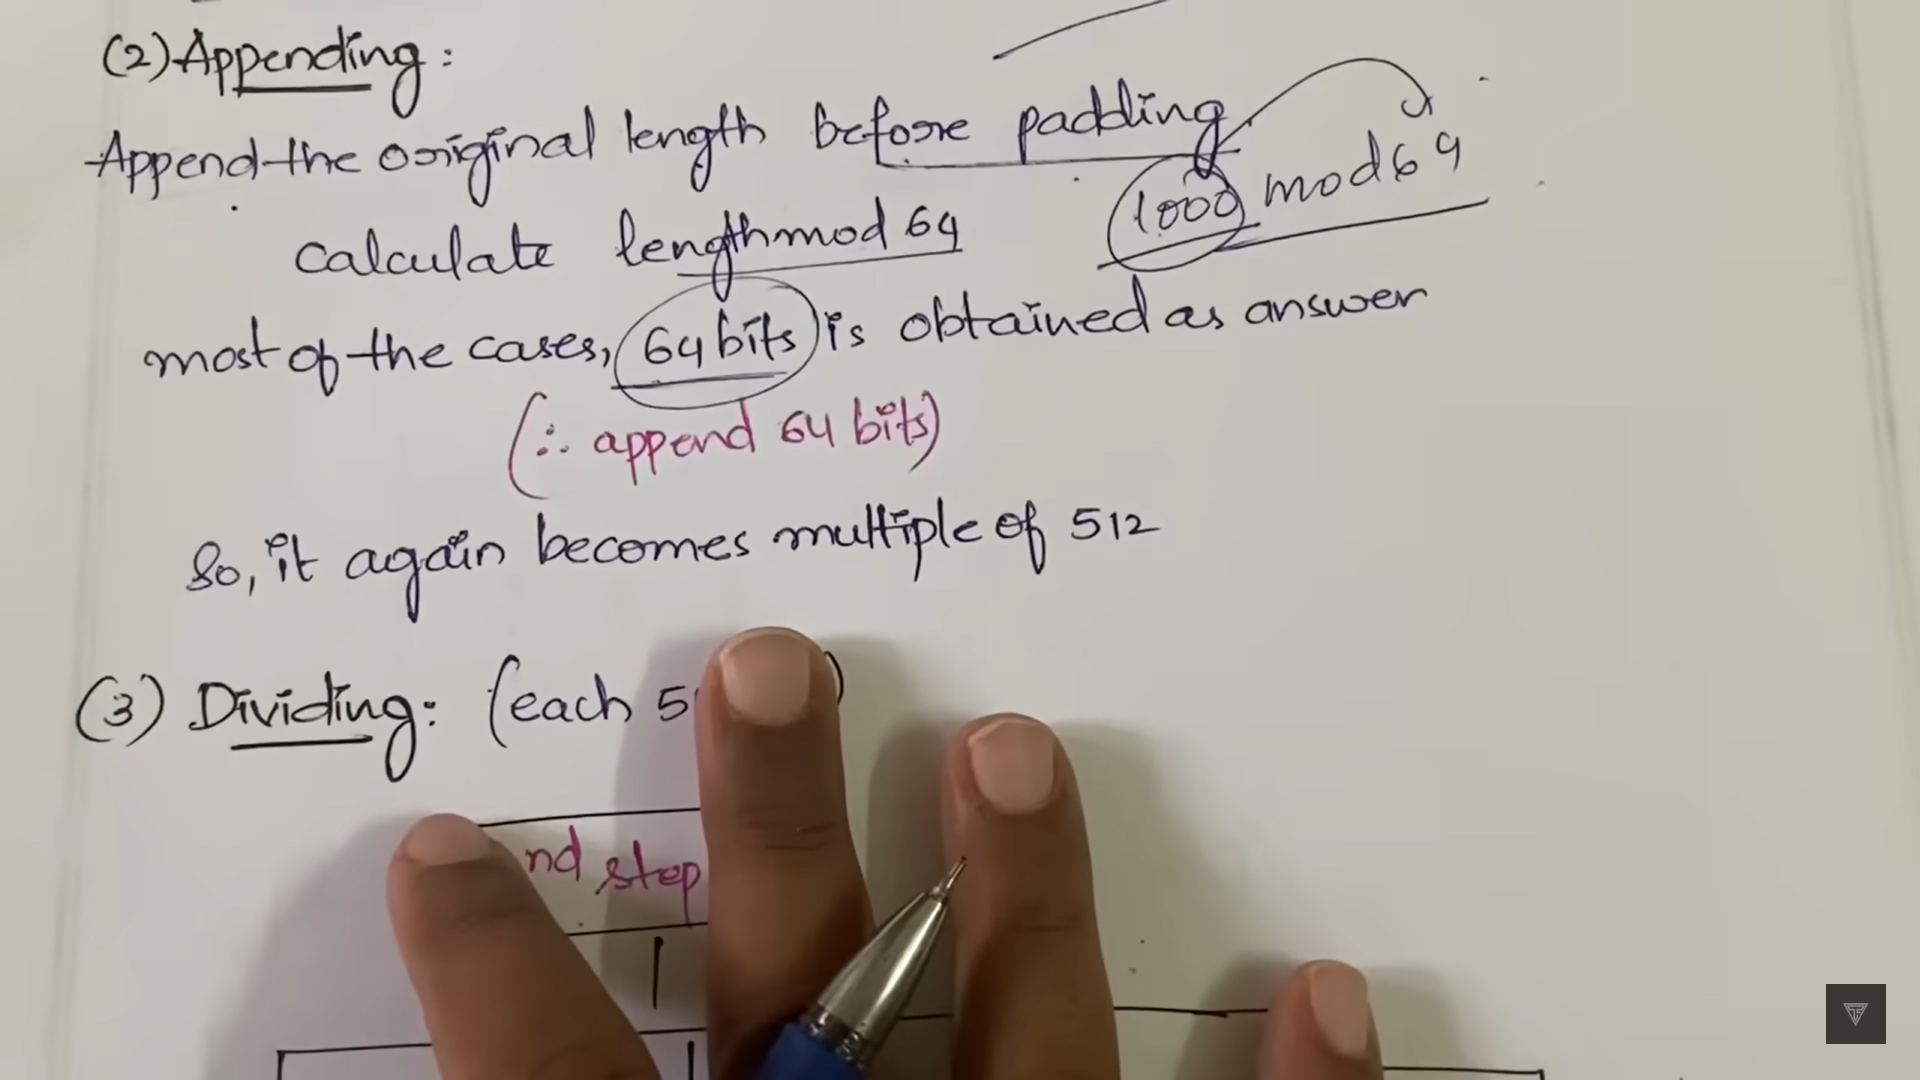 (2) Appending:
Append the original length before padding
1000 mod 64
calculate lengthmod 64
most of the cases, 64 bits is obtained as answer
(∴ append 64 bits)
So, it again becomes multiple of 512
(3) Dividing: (each 5
nd step